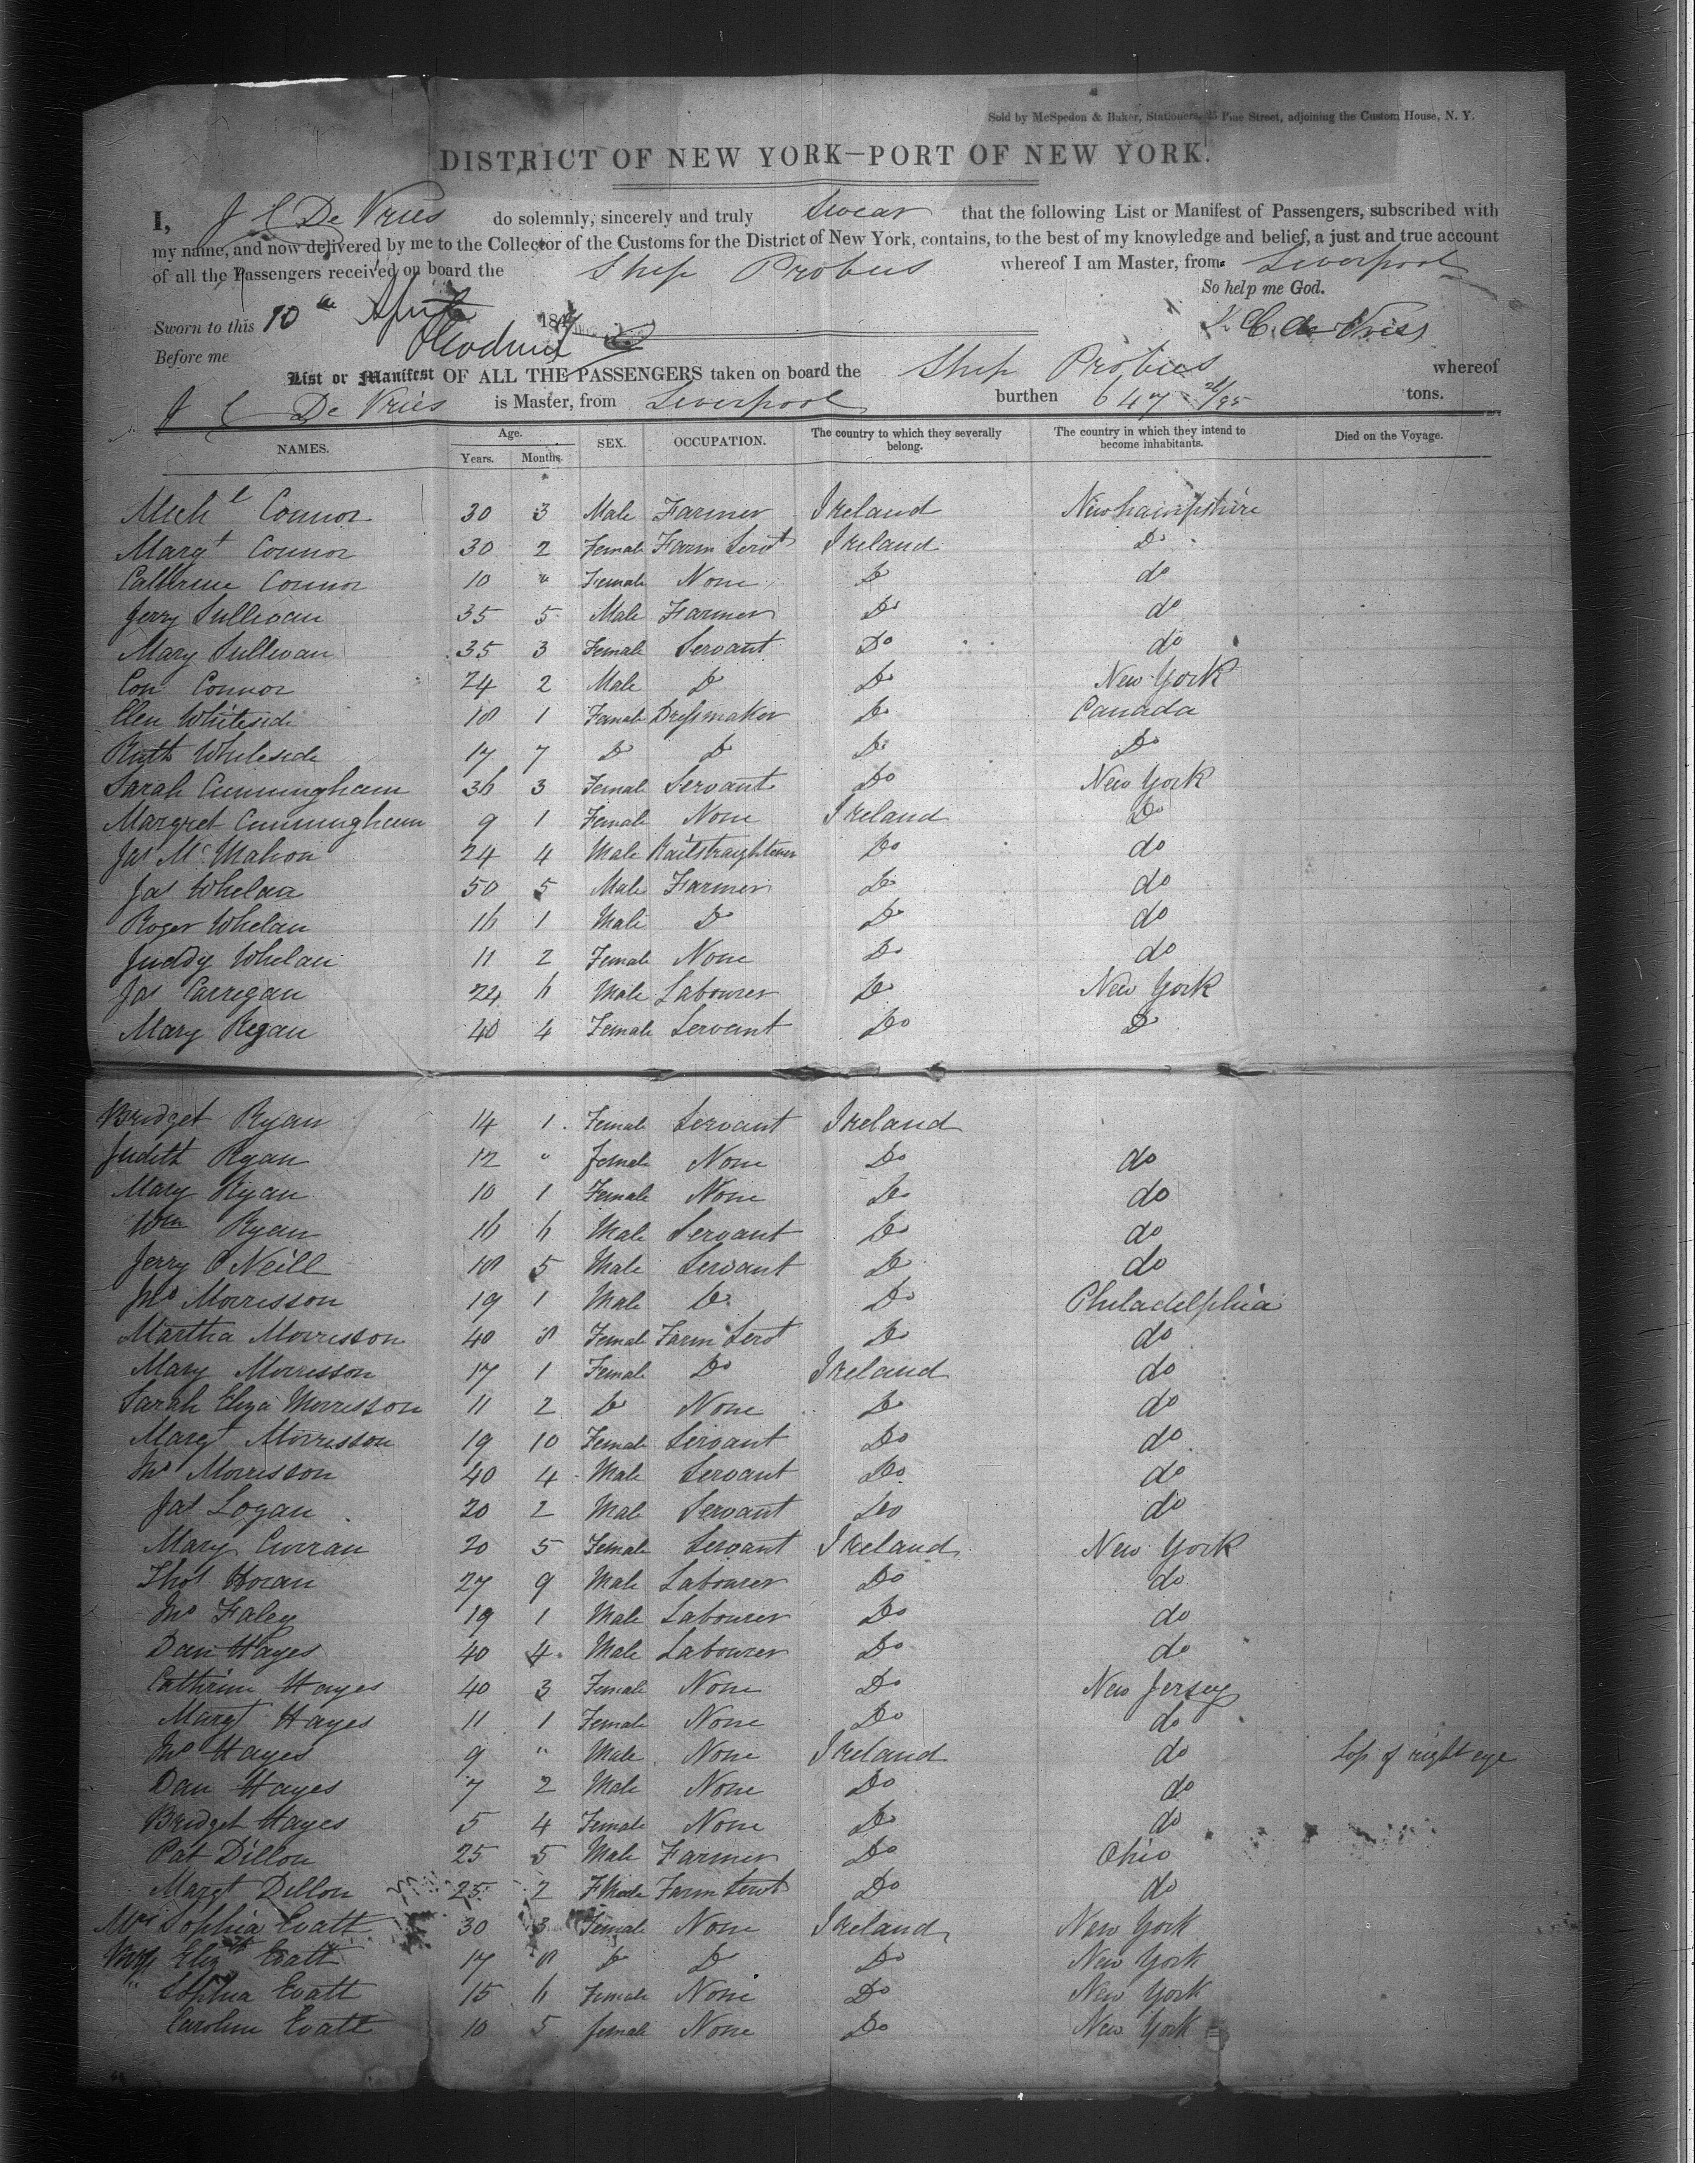 Sold by McSpedon & Baker, Stationers, 25 Pine Street, adjoining the Custom House, N. Y.
DISTRICT OF NEW YORK—PORT OF NEW YORK.
I, J C De Vries do solemnly, sincerely and truly Swear that the following List or Manifest of Passengers, subscribed with
my name, and now delivered by me to the Collector of the Customs for the District of New York, contains, to the best of my knowledge and belief, a just and true account
of all the Passengers received on board the Ship Probus whereof I am Master, from Liverpool
So help me God.
Sworn to this 10th April 1847
J. C. de Vries
Before me
List or Manifest OF ALL THE PASSENGERS taken on board the Ship Probus whereof
J C De Vries is Master, from Liverpool burthen 647 /95 tons.
NAMES. Age. Years. Months. SEX. OCCUPATION. The country to which they severally belong. The country in which they intend to become inhabitants. Died on the Voyage.
Michl Connor 30 3 Male Farmer Ireland Newhampshire
Margt Connor 30 2 Female Farm Servt Ireland Do
Cathrine Connor 10 " Female None Do do
Jerry Sullivan 35 5 Male Farmer Do do
Mary Sullivan 35 3 Female Servant Do do
Con Connor 24 2 Male Do Do New York
Elen Whiteside 18 1 Female Dressmaker Do Canada
Ruth Whiteside 17 7 Do Do Do Do
Sarah Cunningham 36 3 Female Servant Do New York
Margret Cunningham 9 1 Female None Ireland Do
Jas McMahon 24 4 Male Railstraightener Do do
Jas Whelan 50 5 Male Farmer Do do
Roger Whelan 16 1 Male Do Do do
Juddy Whelan 11 2 Female None Do do
Jas Carregan 24 6 Male Labourer Do New York
Mary Regan 40 4 Female Servant Do Do
Bridget Ryan 14 1 Female Servant Ireland
Judith Ryan 12 " female None Do do
Mary Ryan 10 1 Female None Do do
Wm Ryan 16 6 Male Servant Do do
Jerry O'Neill 18 5 Male Servant Do do
Jno Morrisson 19 1 Male Do Do Philadelphia
Martha Morrisson 40 8 Female Farm Servt Do do
Mary Morrisson 17 1 Female Do Ireland do
Sarah Eliza Morrisson 11 2 Do None Do do
Margt Morrisson 19 10 Female Servant Do do
Jno Morrisson 40 4 Male Servant Do do
Jas Logan 20 2 Male Servant Do do
Mary Curran 20 5 Female Servant Ireland New York
Thos Horan 27 9 Male Labourer Do do
Jno Faley 19 1 Male Labourer Do do
Dan Hayes 40 4 Male Labourer Do do
Cathrine Hayes 40 3 Female None Do New Jersey
Margt Hayes 11 1 Female None Do do
Jno Hayes 9 " Male None Ireland do Loss of right eye
Dan Hayes 7 2 Male None Do do
Bridget Hayes 5 4 Female None Do do
Pat Dillon 25 5 Male Farmer Do Ohio
Margt Dillon 25 2 Female Farm Servt Do do
Mrs Sophia Evatt 30 3 Female None Ireland New York
Miss Elizth Evatt 17 8 Do Do Do New York
" Sophia Evatt 15 6 Female None Do New York
Caroline Evatt 10 5 female None Do New York